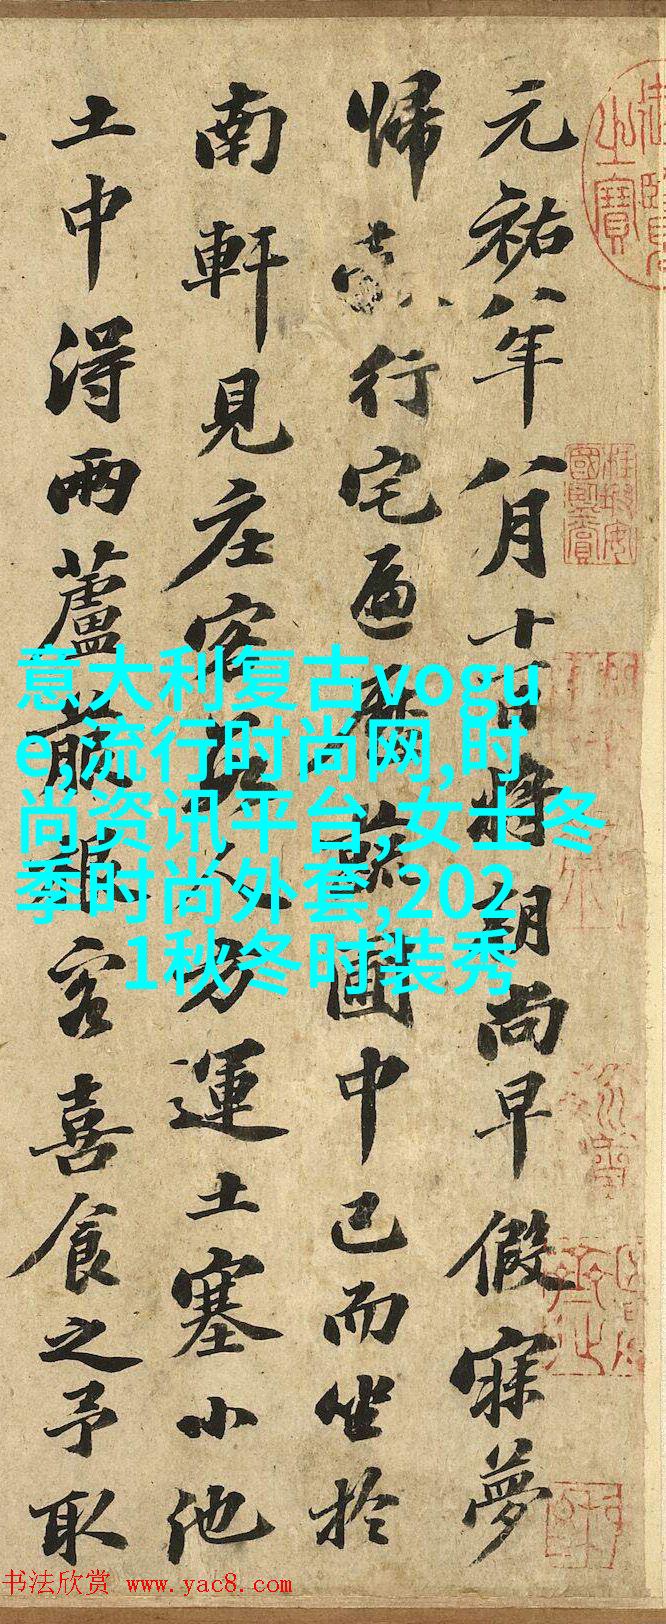 元祐八年八月十一日將朝尚早假寐夢
歸行宅遍歷蔬圃中已而坐於
南軒見庄客數人方運土塞小池
土中得兩蘆菔根客喜食之予取
意大利复古vogu
e,流行时尚网,时
尚资讯平台,女士冬
季时尚外套,202
1秋冬时装秀
书法欣赏 www.yac8.com